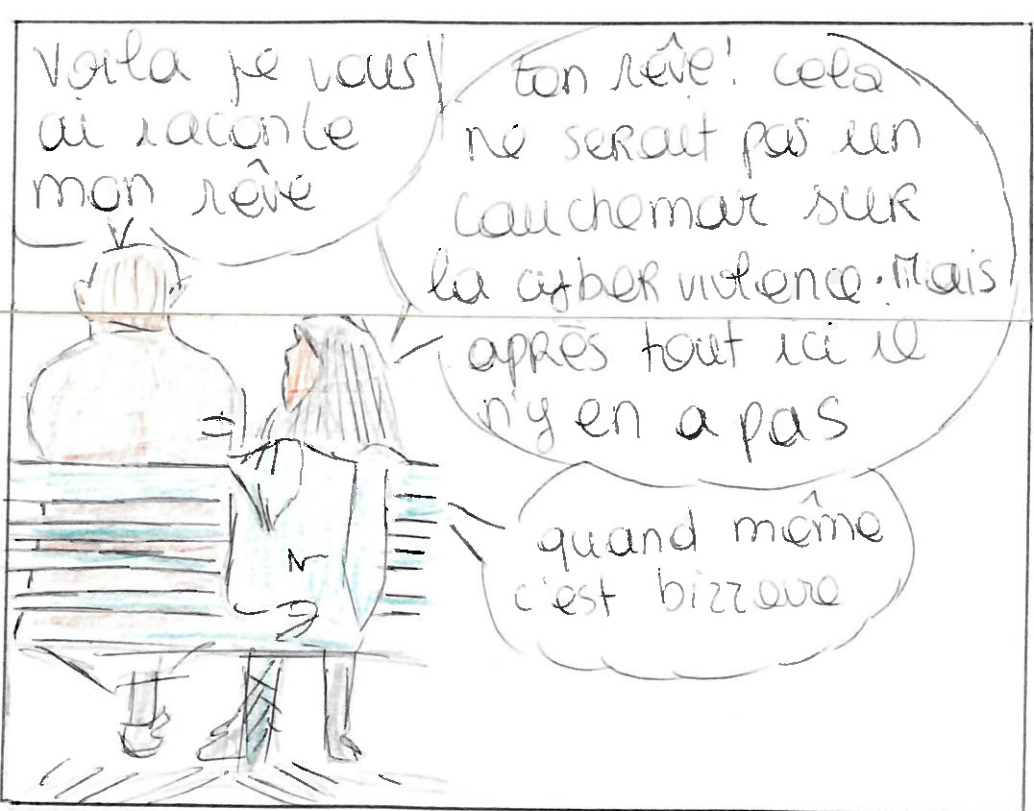 Voila je vous
ai raconte
mon rêve
ton rêve! cela
ne serait pas un
cauchemar sur
la cyber violence. Mais
après tout ici il
n'y en a pas
quand même
c'est bizzare